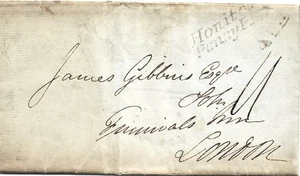 Honiton
Penny P
James Gibbins Esqre
Solr
Furnivals Inn
London